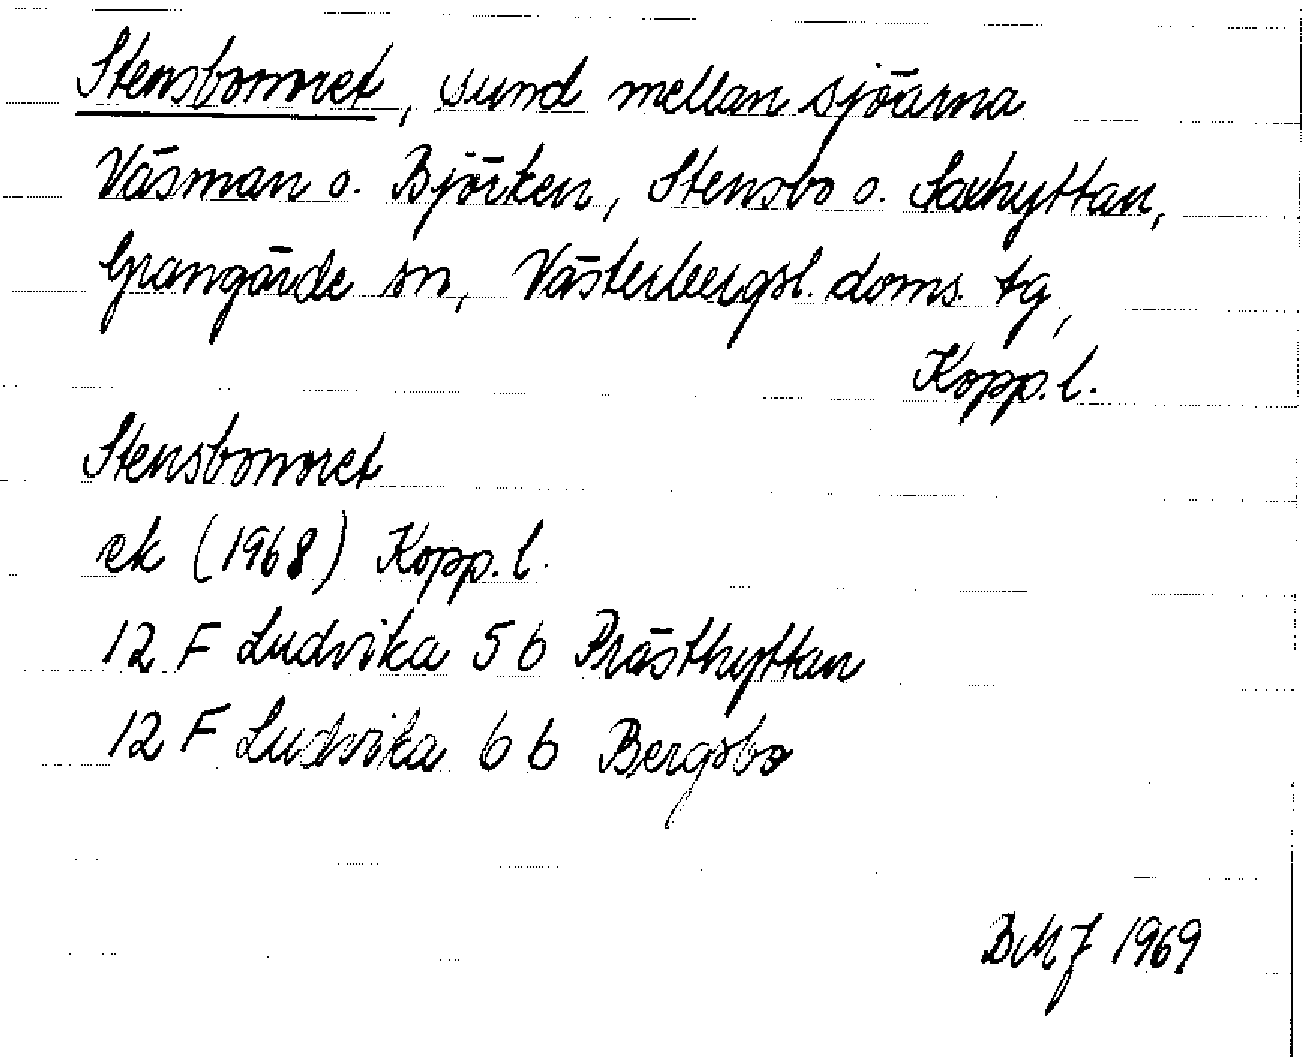 Stensbonoret, sund mellan sjöarna
Väsman o. Björken, Stensbo o. Saxhyttan,
Grangärde sn, Västerbergsl. doms. tg,
Kopp. l.
Stensbonoret
ek (1968) Kopp. l.
12 F Ludvika 5 b Prästhyttan
12 F Ludvika 6 b Bergsbo
BMJ 1969